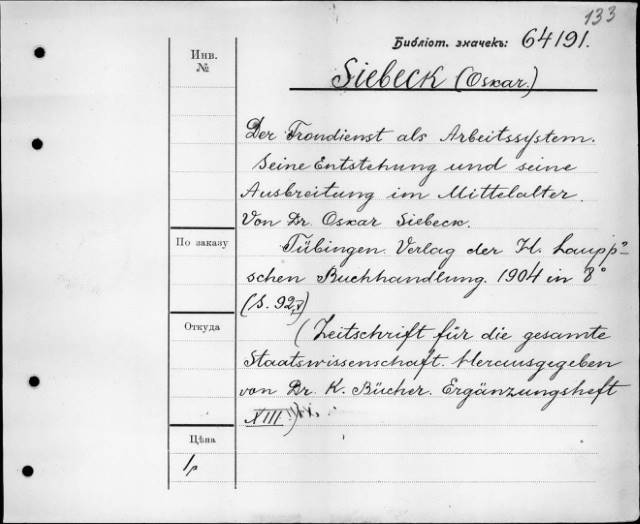 133
Библіот. значекъ: 64191.
Инв.
№
Siebeck (Oskar.)
Der Frondienst als Arbeitssystem.
Seine Entstehung und seine
Ausbreitung im Mittelalter.
Von Dr. Oskar Siebeck.
По заказу
Tübingen. Verlag der H. Laupp'
schen Buchhandlung. 1904 in 8°
(S. 92)
Откуда
(Zeitschrift für die gesamte
Staatswissenschaft. Herausgegeben
von Dr. K. Bücher. Ergänzungsheft
XIII)
Цѣна
1р